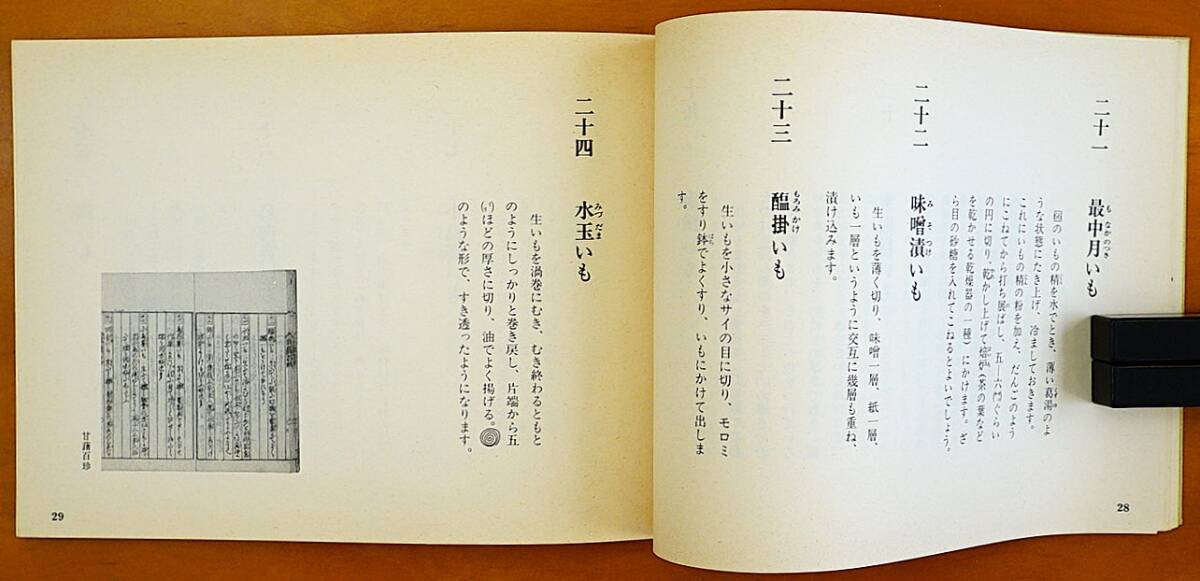 二十一 最中月いも
もなかのつき
のいもの精を水でとき、薄い葛湯のよ
うな状態にたき上げ、冷ましておきます。
これにいもの精の粉を加え、だんごのよう
にこねてから打ち展ばし、五―六ぐらい
の円に切り、乾かし上げて焙炉(茶の葉など
を乾かせる乾燥器の一種)にかけます。ざ
ら目の砂糖を入れてこねるとよいでしょう。
二十二 味噌漬いも
みそつけ
生いもを薄く切り、味噌一層、紙一層、
いも一層というように交互に幾層も重ね、
漬け込みます。
二十三 醢掛いも
もろみかけ
生いもを小さなサイの目に切り、モロミ
をすり鉢でよくすり、いもにかけて出しま
す。
28
二十四 水玉いも
みづだま
生いもを渦巻にむき、むき終わるともと
のようにしっかりと巻き戻し、片端から五
ほどの厚さに切り、油でよく揚げる。
のような形で、すき透ったようになります。
甘藷百珍
29